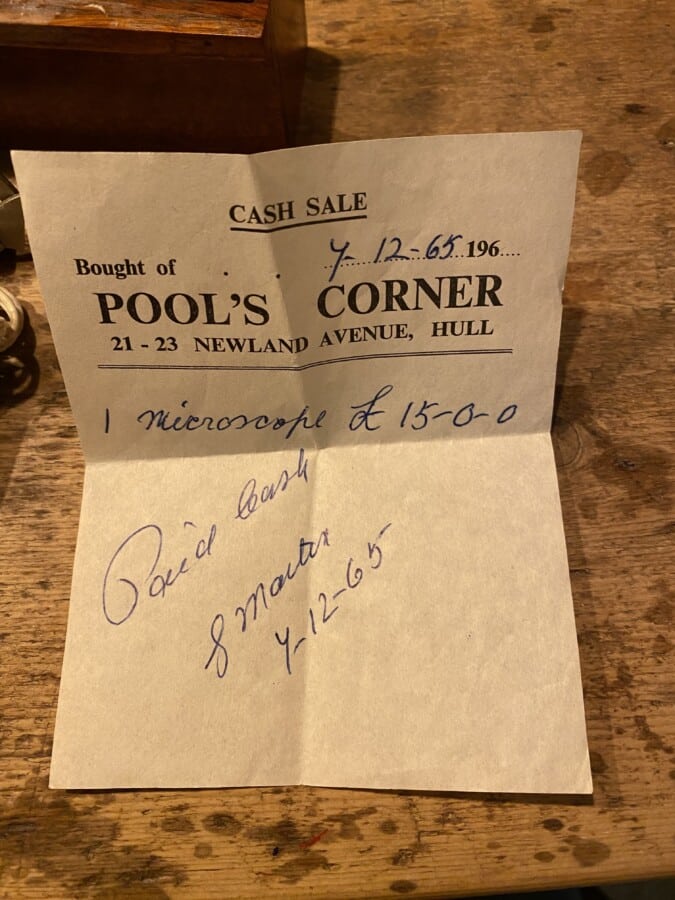 CASH SALE
7-12-65 196....
Bought of . .
POOL'S CORNER
21 - 23 NEWLAND AVENUE, HULL
1 microscope £ 15-0-0
Paid Cash
7-12-65